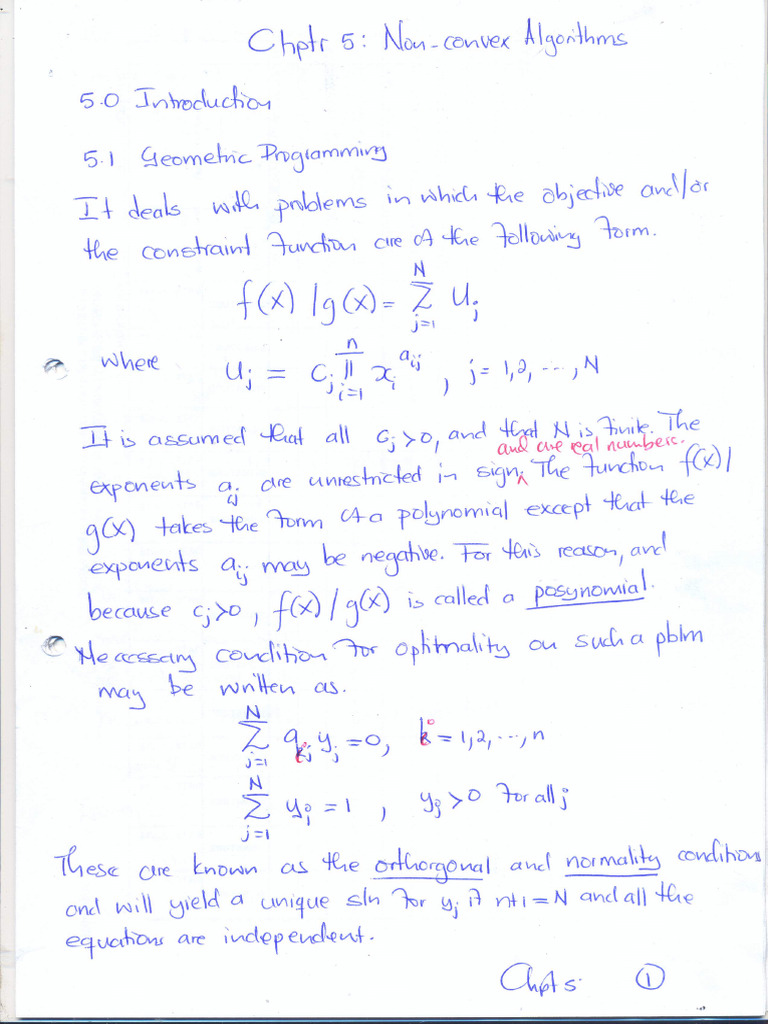 Chptr 5: Non-convex Algorithms
5.0 Introduction
5.1 Geometric Programming
It deals with problems in which the objective and/or
the constraint function are of the following form.
f(x) /g(x) = N Σ j=1 Uj
where Uj = Cj n ∏ i=1 xi^aij , j = 1,2, ..., N
It is assumed that all Cj>0, and that N is finite. The
and are real numbers.
exponents aij are unrestricted in sign. ^ The function f(x)/
g(x) takes the form of a polynomial except that the
exponents aij may be negative. For this reason, and
because Cj>0, f(x)/g(x) is called a posynomial.
Necessary condition for optimality on such a pblm
may be written as.
N Σ j=1 aij yj = 0, i = 1,2, ..., n
N Σ j=1 yj = 1 , yj > 0 for all j
These are known as the orthorgonal and normality condition
and will yield a unique sln for yj if n+1 = N and all the
equations are independent.
Chpt 5. 1